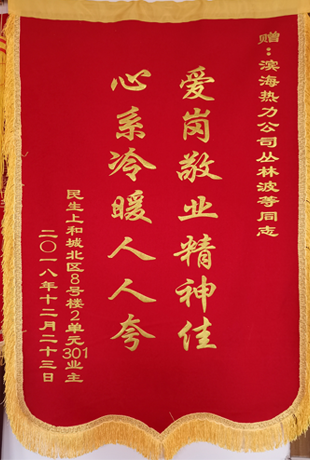 赠：滨海热力公司丛林波等同志
爱岗敬业精神佳
心系冷暖人人夸
民生上和城北区8号楼2单元301业主
二〇一八年十二月二十三日